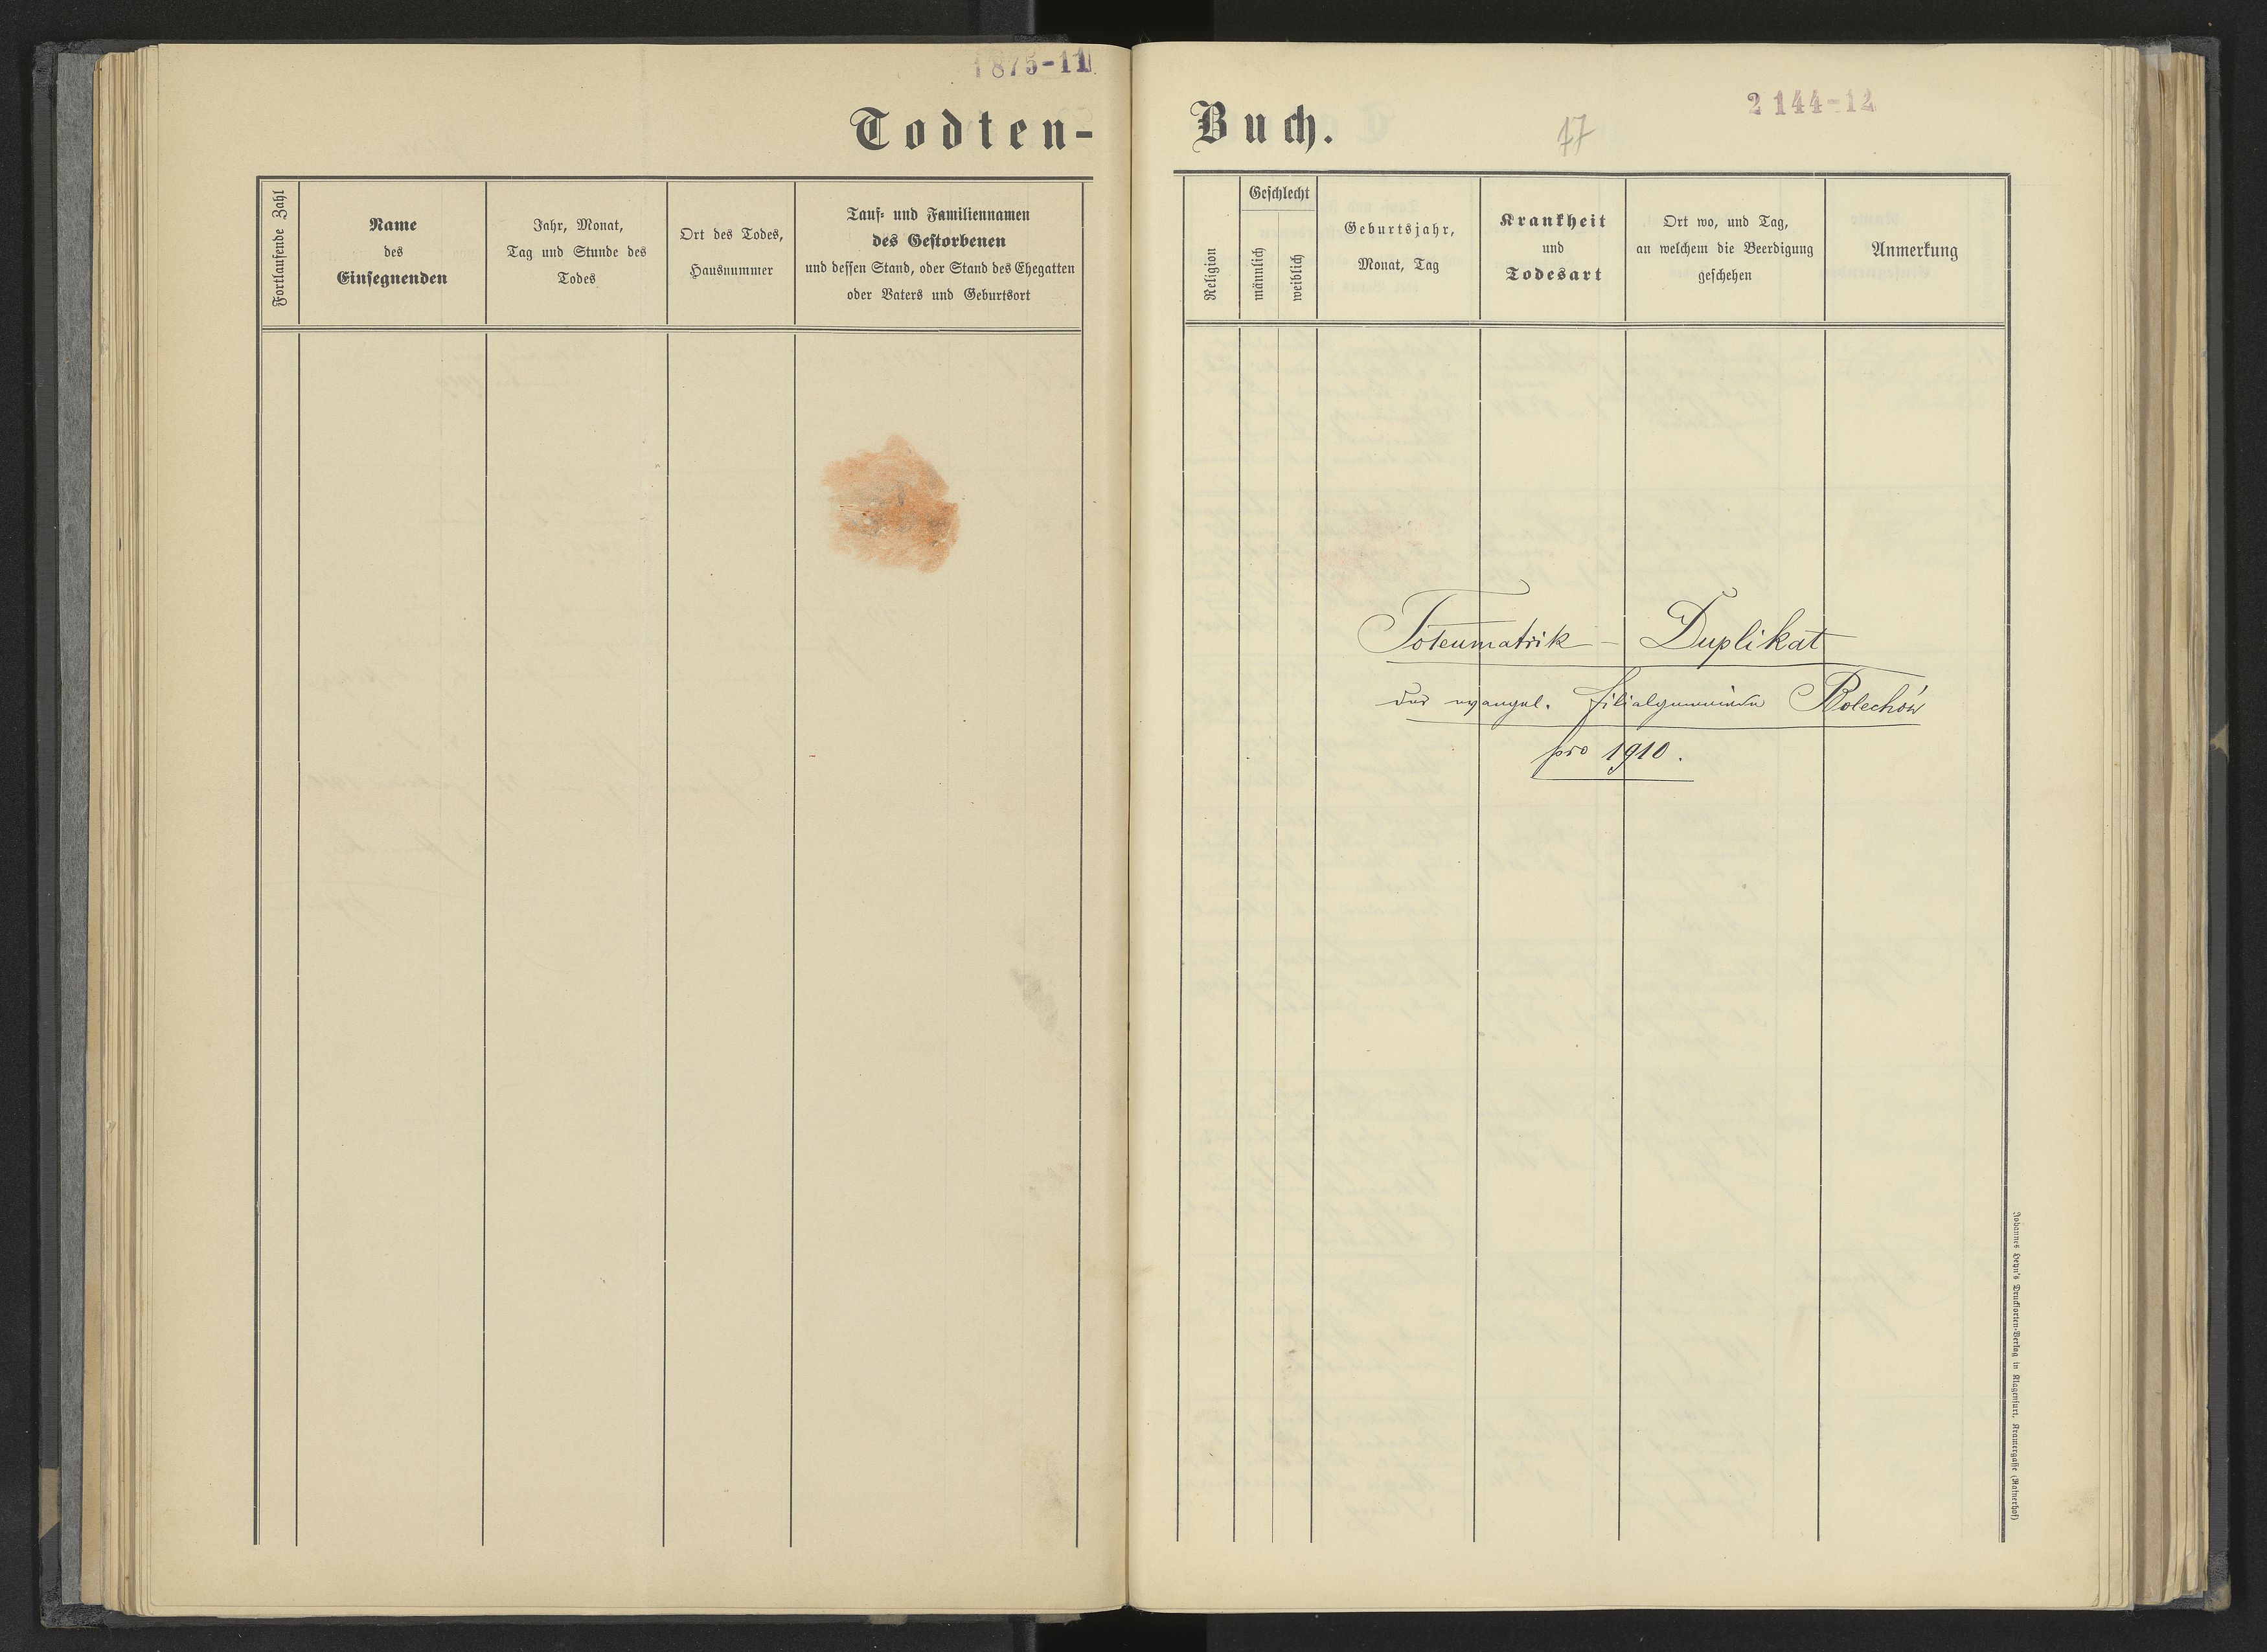 1875-11
Todten-
Fortlaufende Zahl
Name
des
Einsegnenden
Jahr, Monat,
Tag und Stunde des
Todes
Ort des Todes,
Hausnummer
Tauf- und Familiennamen
des Gestorbenen
und dessen Stand, oder Stand des Ehegatten
oder Vaters und Geburtsort
2144-12
Buch.
17
Religion
Geschlecht
männlich
weiblich
Geburtsjahr,
Monat, Tag
Krankheit
und
Todesart
Ort wo, und Tag,
an welchem die Beerdigung
geschehen
Anmerkung
Totenmatrik – Duplikat
der evangel. Filialgemeinde Bolechów
pro 1910.
Johannes Heyn's Drucksorten-Verlag in Klagenfurt, Kramergasse (Ratnerhof)